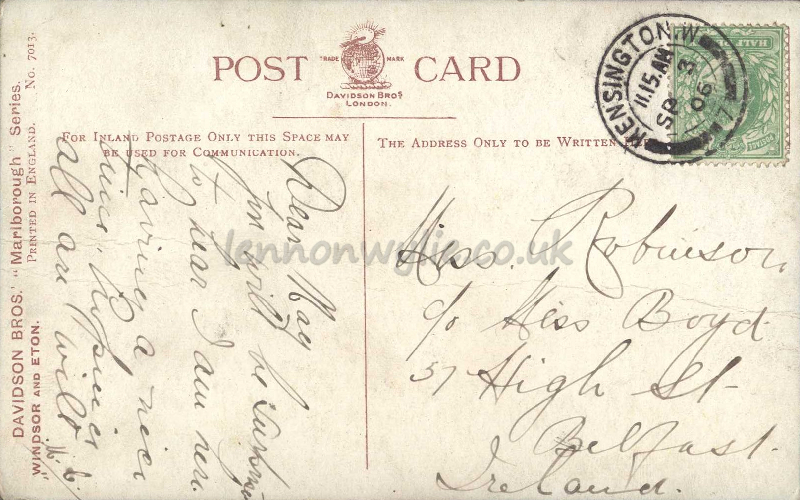 POST CARD
TRADE MARK
DAVIDSON BROS.
LONDON.
FOR INLAND POSTAGE ONLY THIS SPACE MAY
BE USED FOR COMMUNICATION.
THE ADDRESS ONLY TO BE WRITTEN HERE
KENSINGTON.W
11.15.AM
SP 3
06
HALF
POSTAGE
DAVIDSON BROS.' "Marlborough" Series.
PRINTED IN ENGLAND. No. 7013.
"WINDSOR AND ETON."
Dear May
you will be
to hear I am here.
having a nice
time,
all are well
Miss. Robinson,
c/o Miss Boyd
57 High St
Belfast.
Ireland.
lennonwylie.co.uk